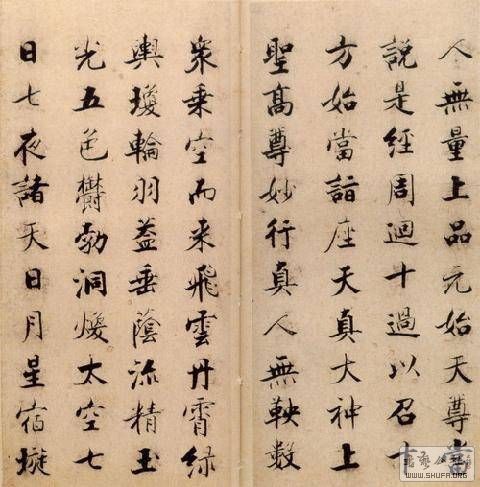 人無量上品元始天尊當
說是經周迴十過以召十
方始當詣座天真大神上
聖高尊妙行真人無鞅數
衆乗空而来飛雲丹霄緑
輿瓊輪羽蓋垂蔭流精玉
光五色欝勃洞煥太空七
日七夜諸天日月星宿璇
WWW.SHUFA.ORG